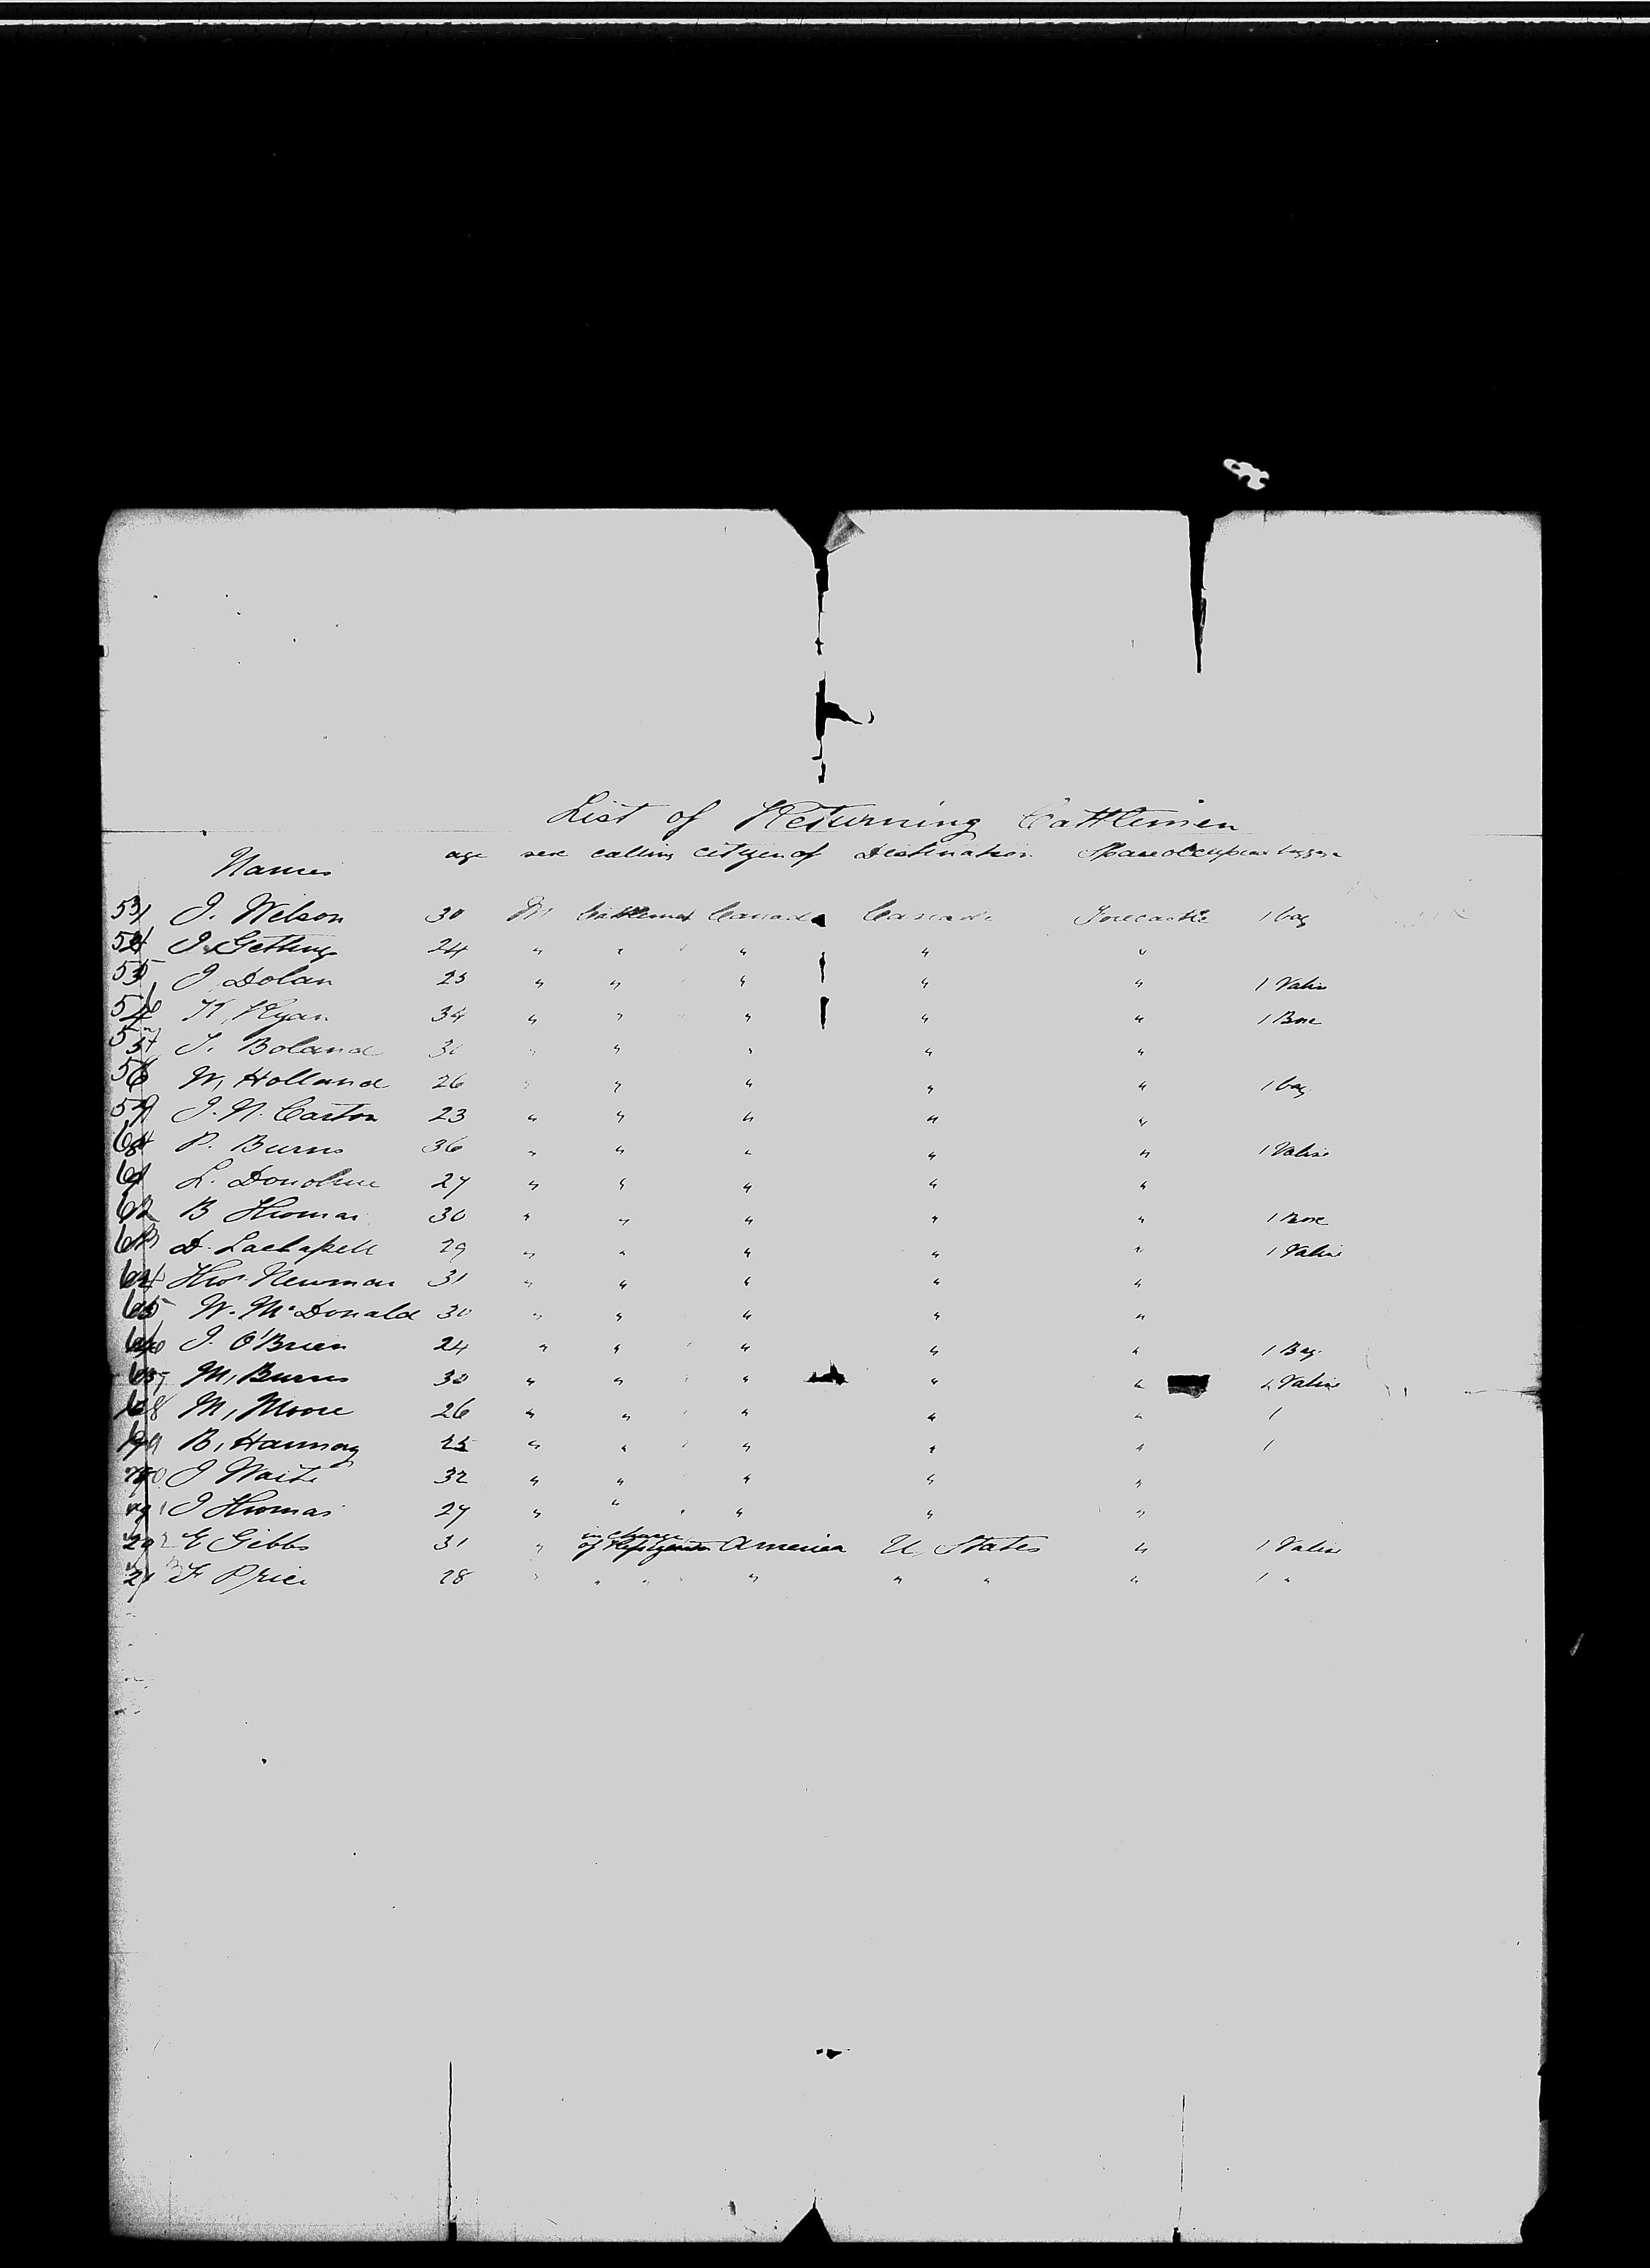 List of Returning Cattlemen
Names age sex calling citizen of Destination Space occupied
J. Welson 30 M Cattleman Canada Canada Forecastle 1 bag
J. Getting 24 " " " " "
55 J Dolan 25 " " " " " 1 Valise
56 Ryan 34 " " " " " 1 Box
57 Boland " " " " "
58 W, Holland 26 " " " " " 1 bag
59 J. N. Carton 23 " " " " "
P. Burns 36 " " " " " 1 Valise
61 L. Donohue 27 " " " " "
62 B Thomas 30 " " " " " 1 Box
63 D. Lachapell 29 " " " " " 1 Valise
64 Thos. Newman 31 " " " " "
65 W. McDonald 30 " " " " "
66 J. O'Brien 24 " " " " " 1 Bag
67 M, Burns 30 " " " " " Valise
68 M, Moore 26 " " " " " 1
69 B, Hannay 25 " " " " " 1
70 J Waite 32 " " " " "
71 J Thomas 27 " " " " "
72 E Gibbs 31 " in charge of America U, States " 1 Valise
73 F Price 28 " " " " " " " " 1 "